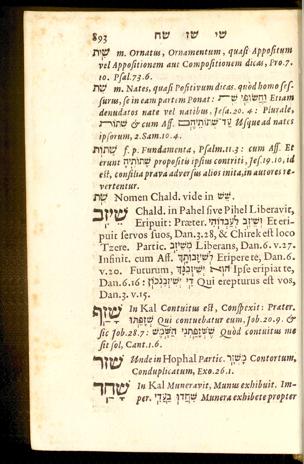 893 שי שז שח
שִׁית m. Ornatus, Ornamentum, quasi Appositum
vel Appositionem aut Compositionem dicas, Pro.7.
10. Psal.73.6.
שֵׁת m. Nates, quasi Positivum dicas. quòd homo ses-
surus, se in eam partem Ponat: וַחֲשׂוּפַי שֵׁת Etiam
denudatos nate vel natibus, Jesa.20.4: Plurale,
שְׁתוֹת & cum Aff. עַד שְׁתוֹתֵיהֶם Usque ad nates
ipsorum, 2.Sam.10.4.
שָׁתוֹת f. p. Fundamenta, Psalm.11.3: cum Aff. Et
erunt שָׁתוֹתֶיהָ propositi ipsius contriti, Jes.19.10, id
est, consilia prava adversus alios inita, in autores re-
vertentur.
שֵׁת Nomen Chald. vide in שֵׁשׁ
שֵׁיזֵב Chald. in Pahel sive Pihel Liberavit,
Eripuit: Præter. וְשֵׁיזִב לְעַבְדוֹהִי Et eri-
puit servos suos, Dan.3.28, & Chirek est loco
Tzere. Partic. מְשֵׁיזִב Liberans, Dan.6. v.27.
Infinit. cum Aff. לְשֵׁיזָבוּתָךְ Eripere te, Dan.6.
v.20. Futurum, הוּא יְשֵׁיזְבִנָּךְ Ipse eripiat te,
Dan.6.16: דִּי יְשֵׁיזְבִנְכוֹן Qui erepturus est vos,
Dan.3. v.15.
שָׁזַף In Kal Contuitus est, Conspexit: Præter.
שְׁזָפַתּוּ Qui contuebatur eum, Job.20.9. &
sic Job.28.7: שֶׁשְּׁזָפַתְנִי הַשָּׁמֶשׁ Quòd contuitus me
sit sol, Cant.1.6.
שׁזר Unde in Hophal Partic. מָשְׁזָר Contortum,
Conduplicatum, Exo.26.1.
שָׁחַד In Kal Muneravit, Munus exhibuit. Im-
per. שִׁחֲדוּ בַעֲדִי Munera exhibete propter